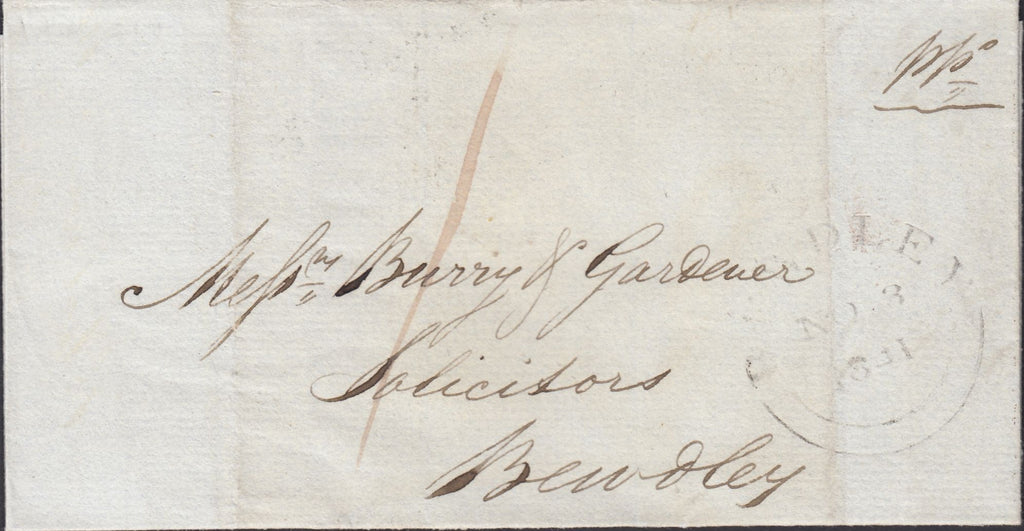 ppd
Messrs Burry & Gardener
Solicitors
Bewdley
DLEY
NO 3
1841